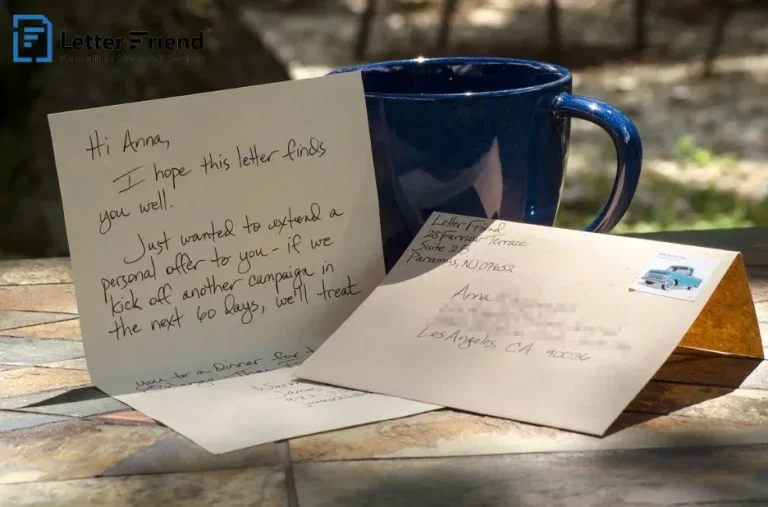 Letter Friend
Hi Anna,
I hope this letter finds
you well.
Just wanted to extend a
personal offer to you - if we
kick off another campaign in
the next 60 days, we'll treat
you to a Dinner for
Letter Friend
Suite 25
Paramus, NJ 07652
Anna
Los Angeles, CA 90036